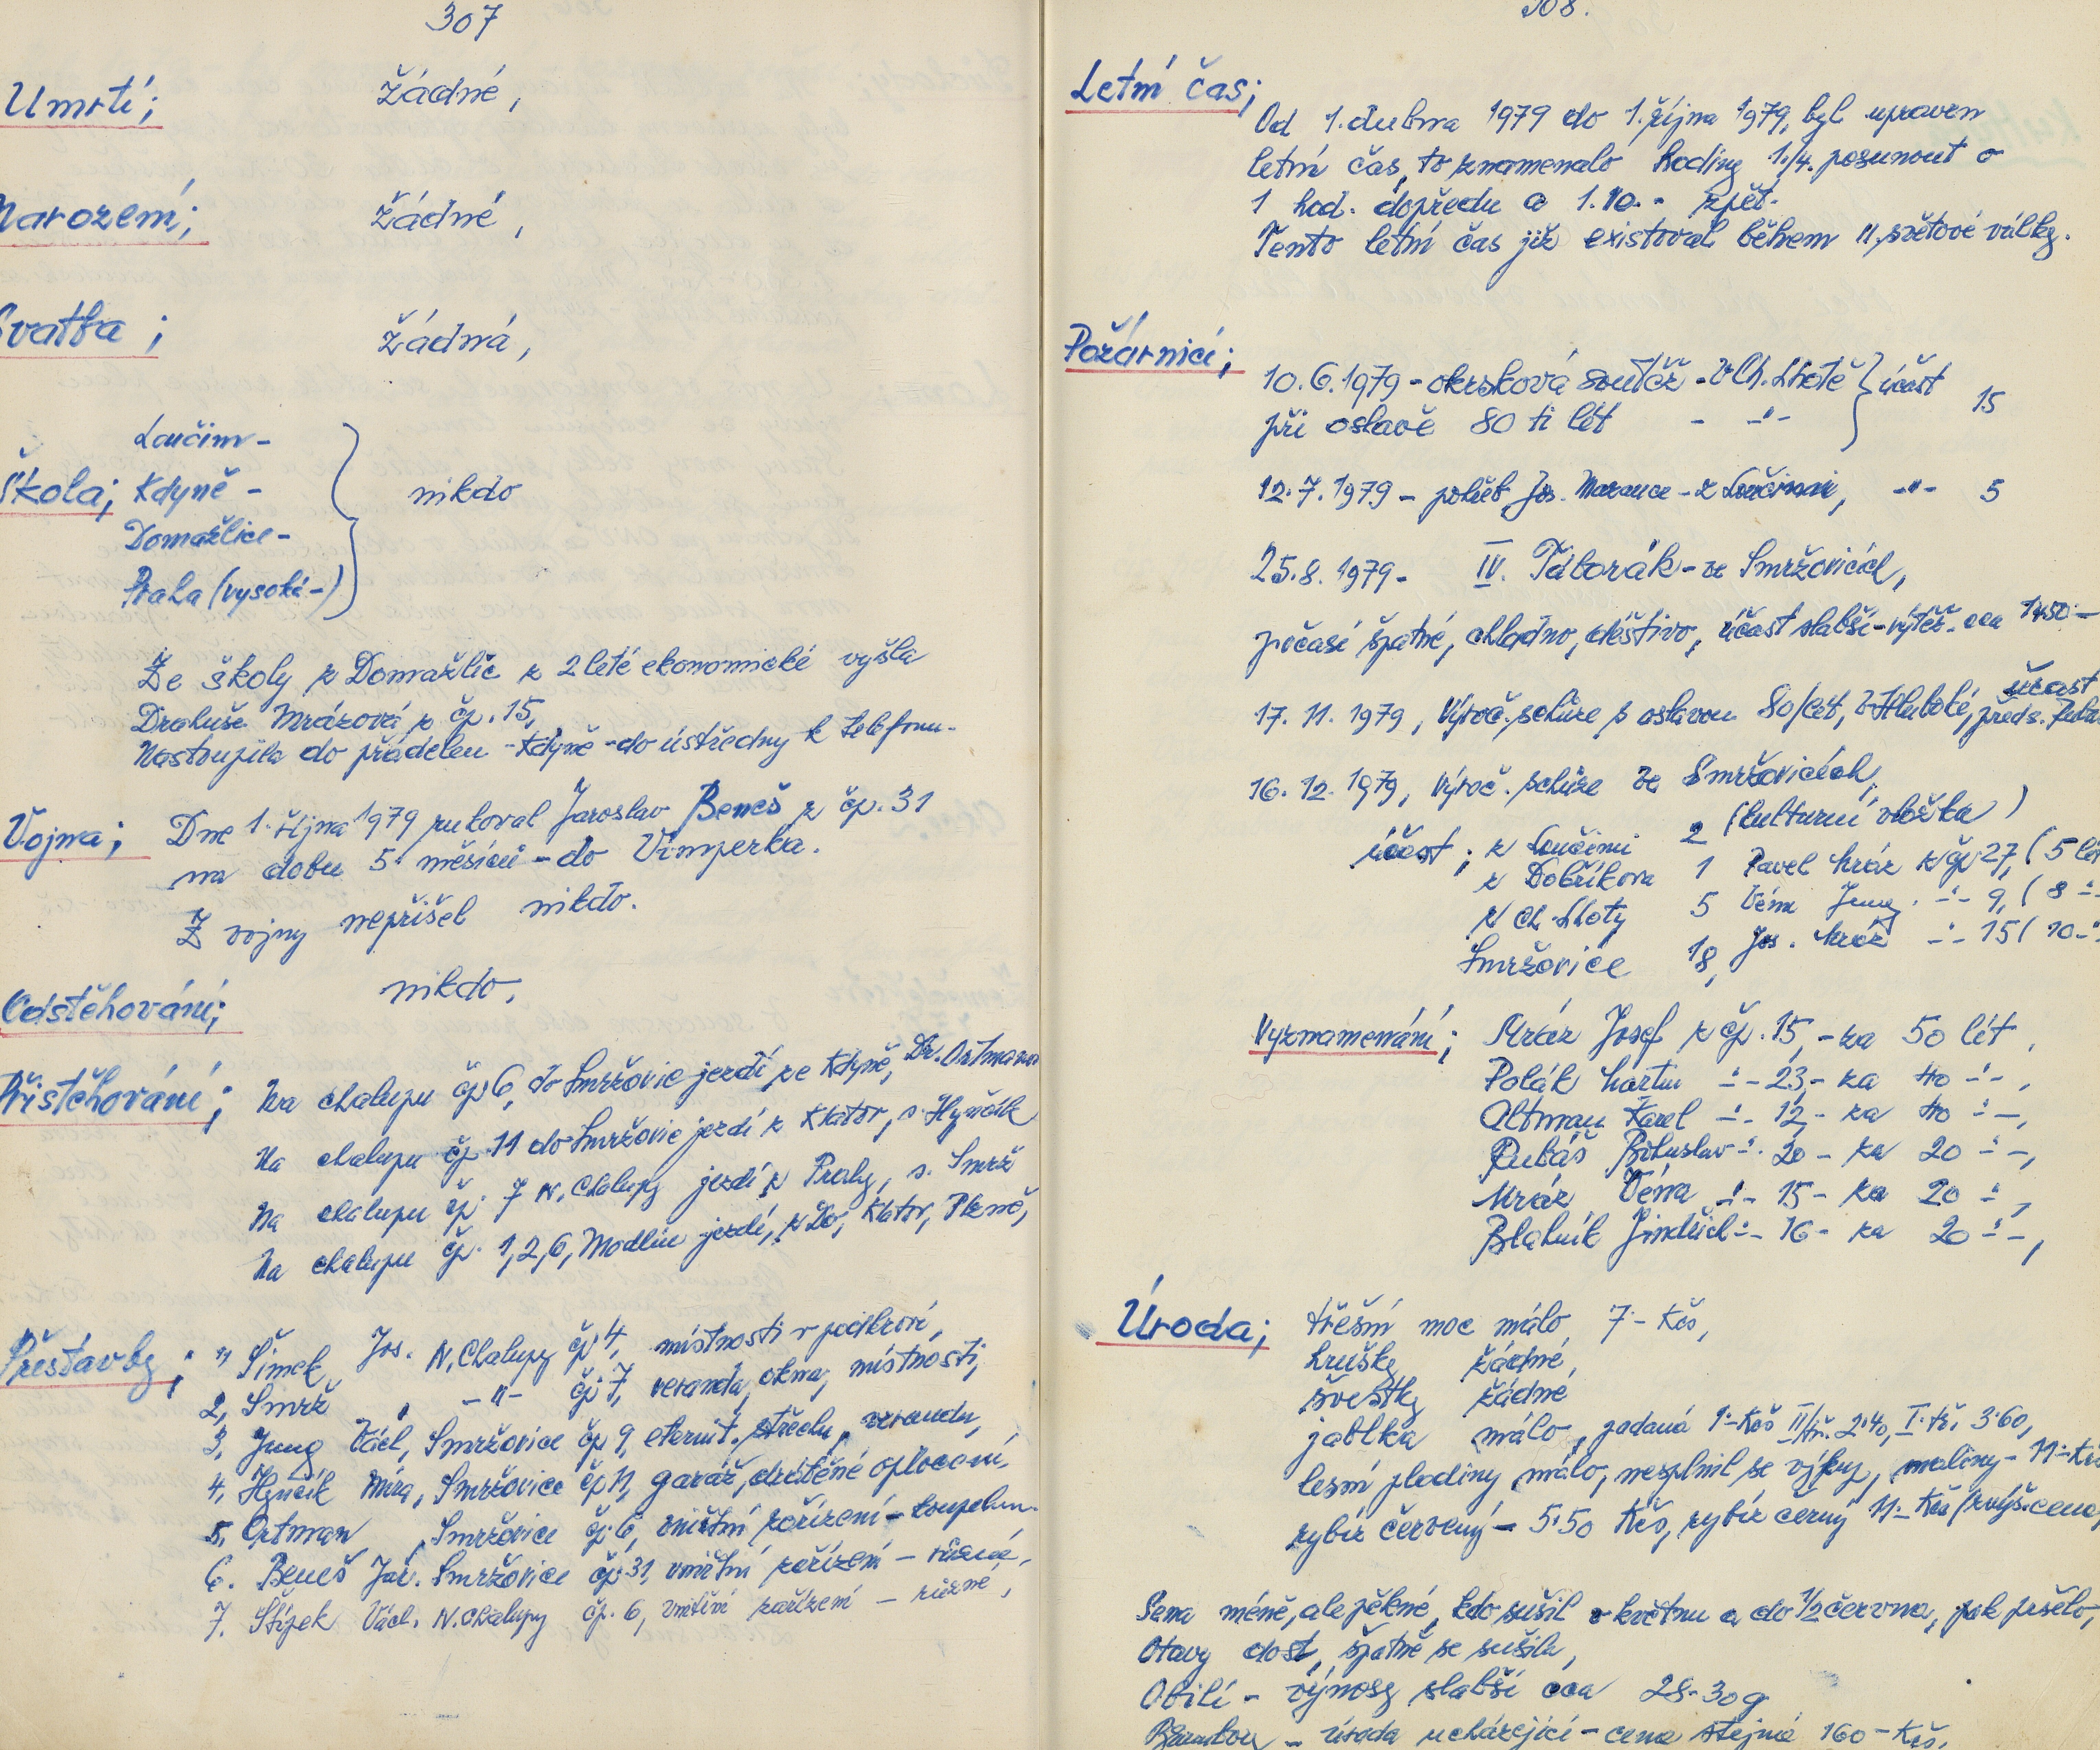 307
Umrtí; Žádné,
Narození; Žádné,
Svatba; Žádná,
Loučim-
Škola; Kdyně - nikdo
Domažlice-
Praha (vysoká-)
Ze školy z Domažlic z 2 leté ekonomické vyšla
Drahuše Mrázová z čp. 15,
Nastoupila do přádelen - Kdyně - do ústředny k telefonu-
Vojna; Dne 1. října 1979 rukoval Jaroslav Beneš z čp. 31
na dobu 5 měsíců - do Vimperka.
Z vojny nepřišel nikdo.
Odstěhování; nikdo,
Přistěhování; Na chalupu čp 6, do Smržovic jezdí ze Kdyně, Dr. Ortmann
Na chalupu čp. 11 do Smržovic jezdí z Klatov, s. Hynčík
Na chalupu čp. 7 N. Chalupy jezdí z Prahy, s. Smrž
Na chalupu čp. 1,2,6, Modlín jezdí, z Do, Klatov, Plzně,
Přestavby; 1, Šimek Jos. N. Chalupy čp. 4, místnosti v podkroví,
2, Smrž -"- čp. 7, veranda, okna, místnosti,
3, Jung Václ, Smržovice čp 9, eternit. střechu, verandu,
4, Hynčík Míra, Smržovice čp 11, garáž, drátěné oplocení,
5, Ortman, Smržovice čp. 6, vnitřní zařízení - koupelnu-
6. Beneš Jar. Smržovice čp. 31, vnitřní zařízení - různé,
7. Štípek Václ. N. Chalupy čp. 6, vnitřní zařízení - různé,
308.
Letní čas;
Od 1. dubna 1979 do 1. října 1979, byl upraven
letní čas, to znamenalo hodiny 1./4. posunout o
1 hod. dopředu a 1.10. - zpět.
Tento letní čas již existoval během II. světové války.
Požárníci;
10. 6. 1979 - okrsková soutěž - v Ch. Lhotě } účast 15
při oslavě 80 ti lét - -"-
12. 7. 1979 - pohřeb Jos. - z Loučimi, -"- 5
25. 8. 1979 - IV. Táborák - ve Smržovicích,
počasí špatné, chladno, deštivo, účast slabší - výtěž. cca 1450.-
17. 11. 1979, Výroč. schůze s oslavou 80/lét, v Hluboké, účast předs.
16. 12. 1979, Výroč. schůze ve Smržovicích,
(kulturní vložka)
účast; z Loučimi 2
z Dobříkova 1 Pavel Mráz z čp 27, (5 lét
z Ch. Lhoty 5 Véna Jung -"- 9, (8 -"-
Smržovice 18, Jos. Mráz -"- 15 (10 -"-
Vyznamenání; Mráz Josef z čp. 15, - za 50 lét,
Polák Martin -"- 23, - za 40 -"-,
Altman Karel -"- 12, - za 40 -"-,
Rubáš Bohuslav -"- 20 - za 20 -"-,
Mráz Véna -"- 15 - za 20 -"-,
Blahník Jindřich -"- 16 - za 20 -"-,
Úroda; třešní moc málo, 7 - Kčs,
hrušky žádné,
švestky žádné
jablka málo, padaná 1.- Kčs II/tř. 2.40, I. tř. 3.60,
lesní plodiny málo, nesplnil se výkup, maliny - 11.- Kčs
rybíz červený - 5.50 Kčs, rybíz černý 11.- Kčs (zvýš. cena,
Sena méně, ale pěkné, kdo sušil v květnu a do 1/2 června, pak pršelo,
Otavy dost, špatně se sušila,
Obilí - výnosy slabší cca 28-30 q
Brambory - úroda ucházející - cena stejná 160 - Kčs.